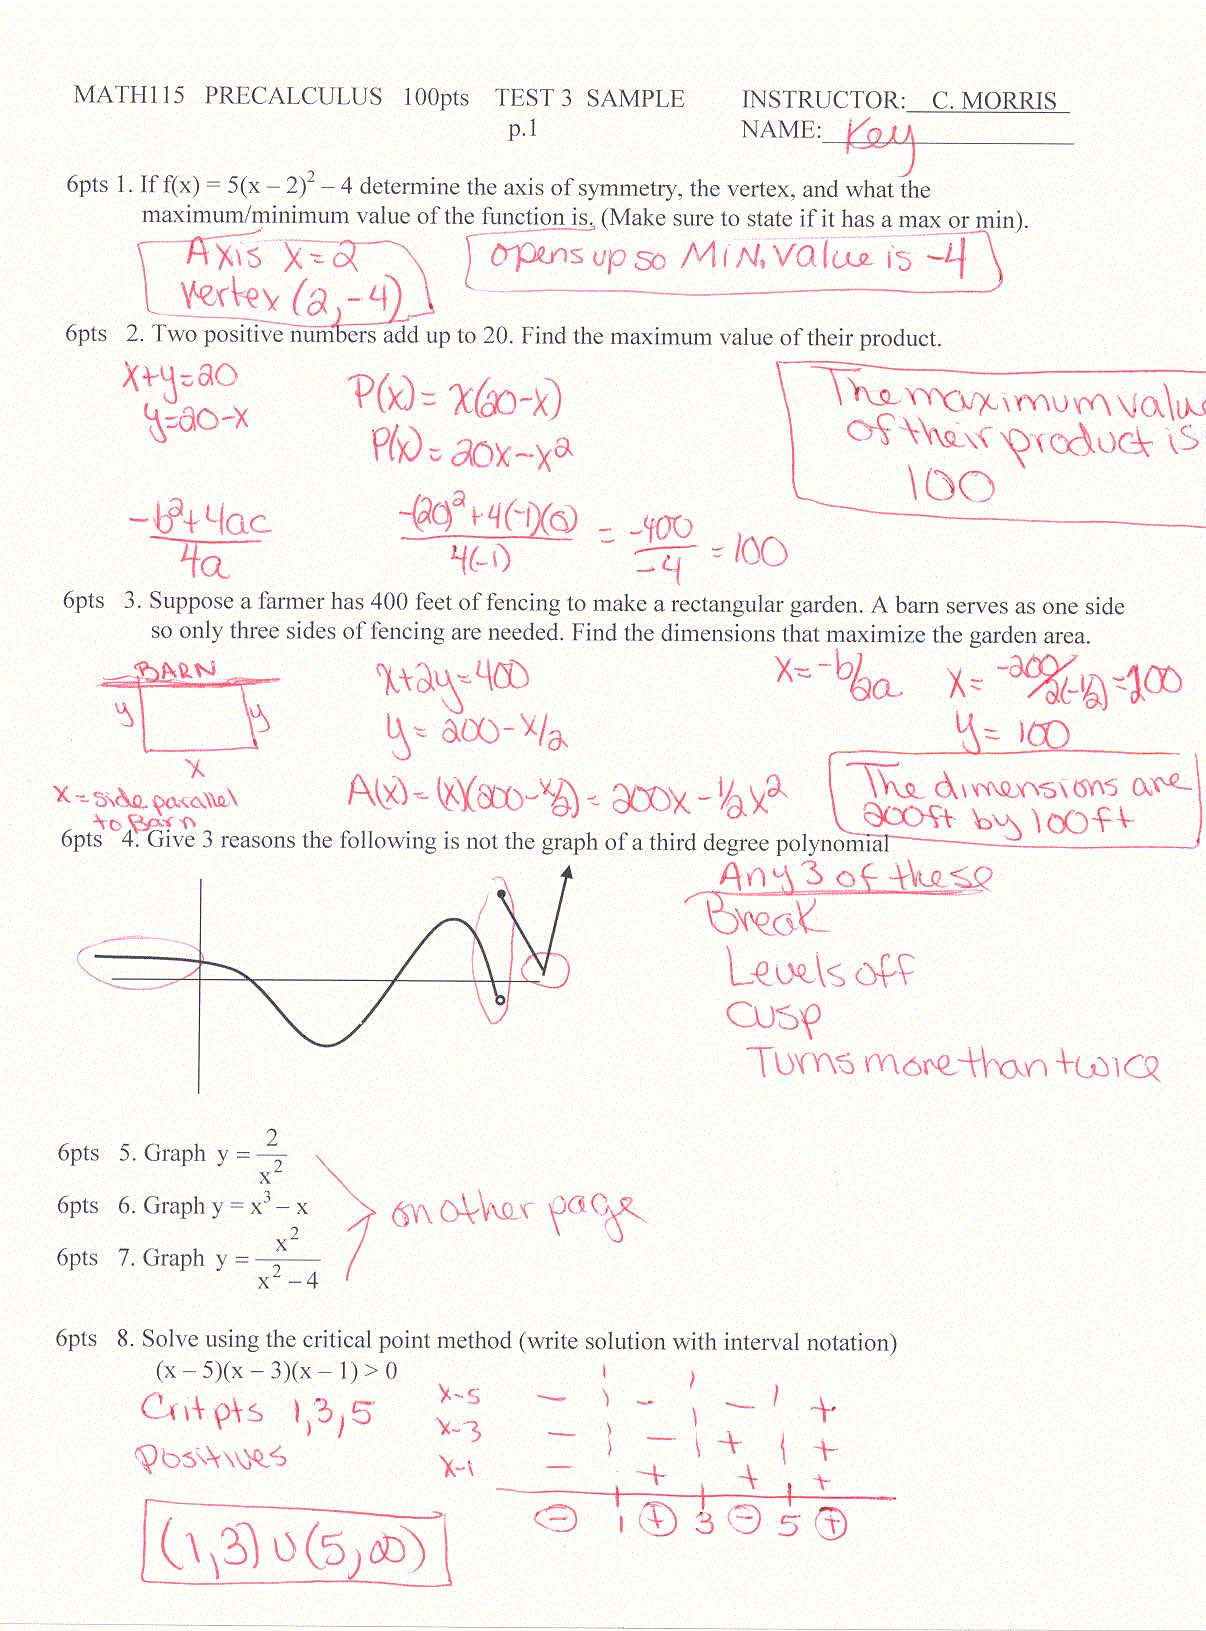 MATH115 PRECALCULUS 100pts TEST 3 SAMPLE INSTRUCTOR: C. MORRIS
p.1 NAME: Key
6pts 1. If f(x) = 5(x – 2)² – 4 determine the axis of symmetry, the vertex, and what the
maximum/minimum value of the function is. (Make sure to state if it has a max or min).
Axis x=2
vertex (2,-4)
opens up so MIN. value is -4
6pts 2. Two positive numbers add up to 20. Find the maximum value of their product.
x+y=20
y=20-x
P(x)= x(20-x)
P(x)= 20x-x²
The maximum value
of their product is
100
(-b²+4ac)/(4a)
(-(20)²+4(-1)(0))/(4(-1)) = -400/-4 = 100
6pts 3. Suppose a farmer has 400 feet of fencing to make a rectangular garden. A barn serves as one side
so only three sides of fencing are needed. Find the dimensions that maximize the garden area.
BARN
y y
x
x = side parallel
to Barn
x+2y=400
y = 200-x/2
A(x) = (x)(200-x/2) = 200x - 1/2x²
x= -b/2a x= -200/2(-1/2) = 200
y= 100
The dimensions are
200ft by 100ft
6pts 4. Give 3 reasons the following is not the graph of a third degree polynomial
Any 3 of these
Break
Levels off
cusp
Turns more than twice
6pts 5. Graph y = 2/x²
6pts 6. Graph y = x³ – x
6pts 7. Graph y = x²/(x² – 4)
on other page
6pts 8. Solve using the critical point method (write solution with interval notation)
(x – 5)(x – 3)(x – 1) > 0
Crit pts 1,3,5
Positives
x-5 − | − | − | +
x-3 − | − | + | +
x-1 − + + +
− 1 + 3 − 5 +
(1,3) ∪ (5,∞)